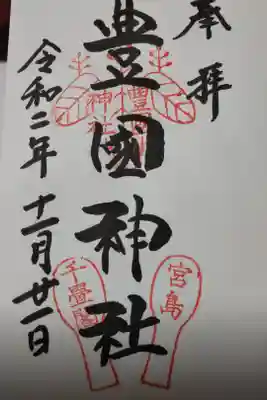 奉拝
豊國神社
令和二年十一月廿一日
豊國神社
宮島
千畳閣